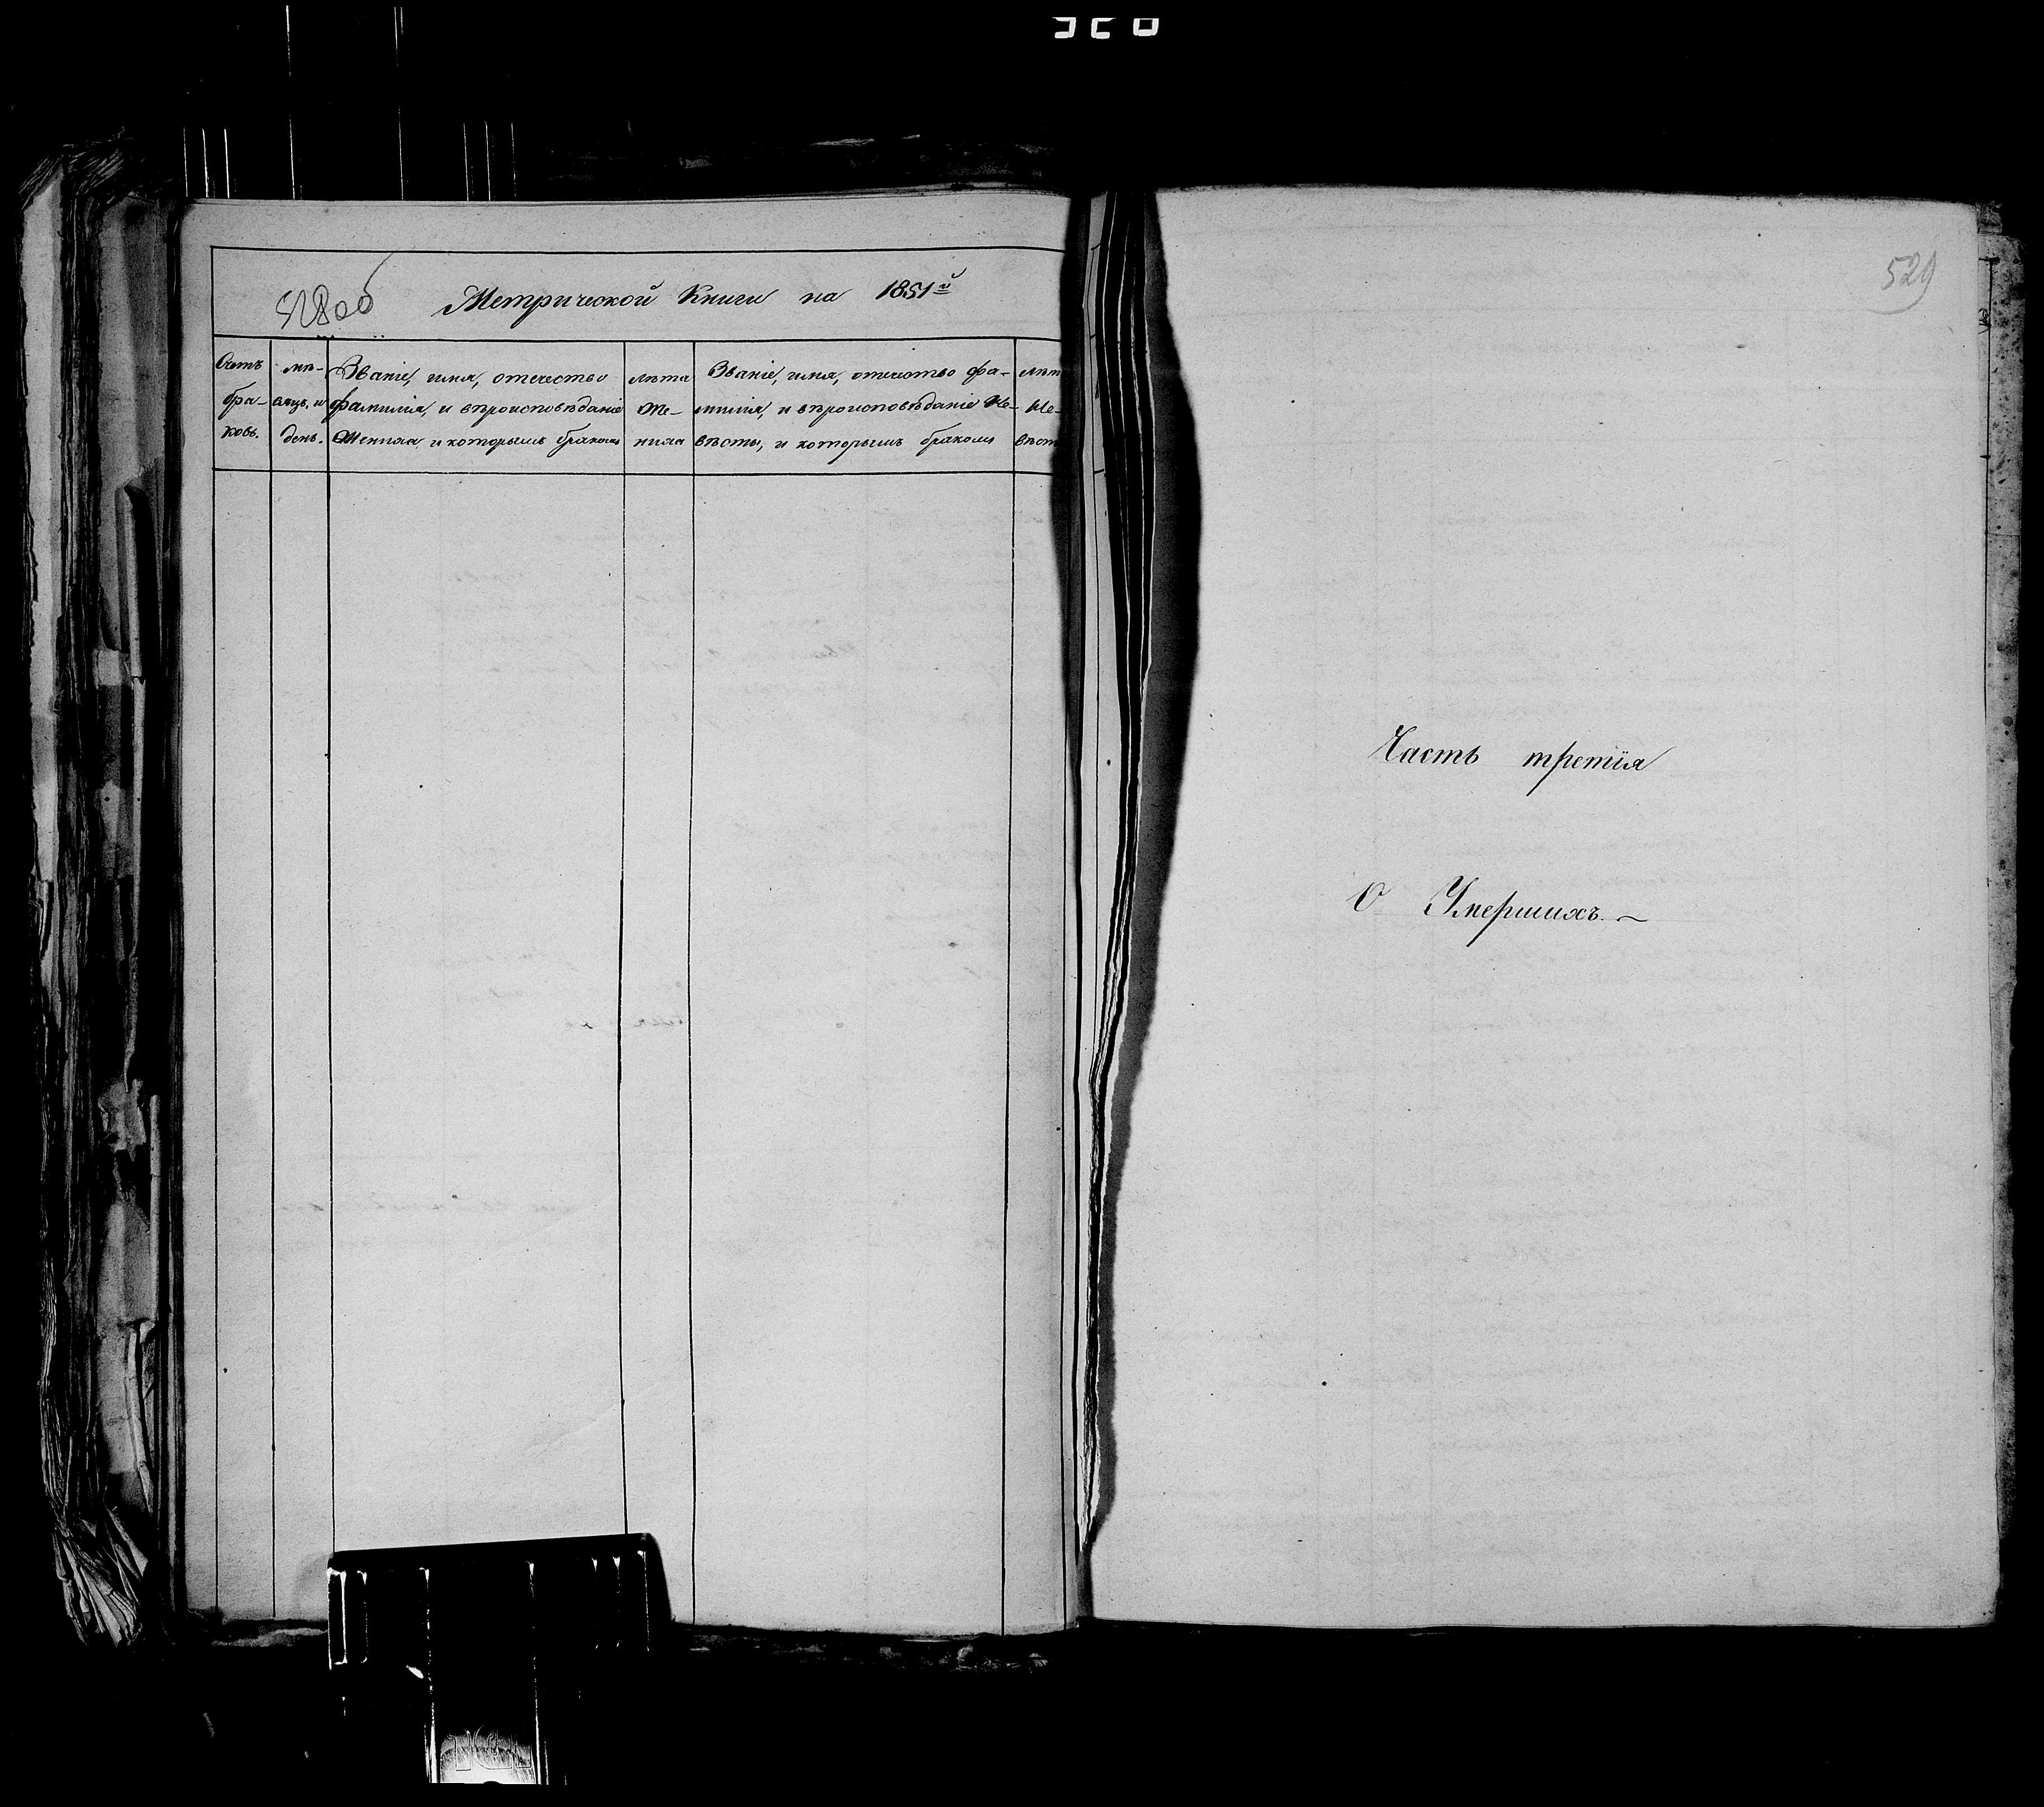 528об
Метрической Книги на 1851й
Счетъ
бра-
ковъ.
мѣ-
сяцъ. и
день.
Званіе, имя, отечество
фамилія, и вѣроисповѣданіе
Жениха и которымъ бракомъ
лѣта
Же-
ниха
Званіе, имя, отечество фа-
милія, и вѣроисповѣданіе Не-
вѣсты, и которымъ бракомъ
лѣт
Не-
вѣст
529
Часть третія
О Умершихъ. ~